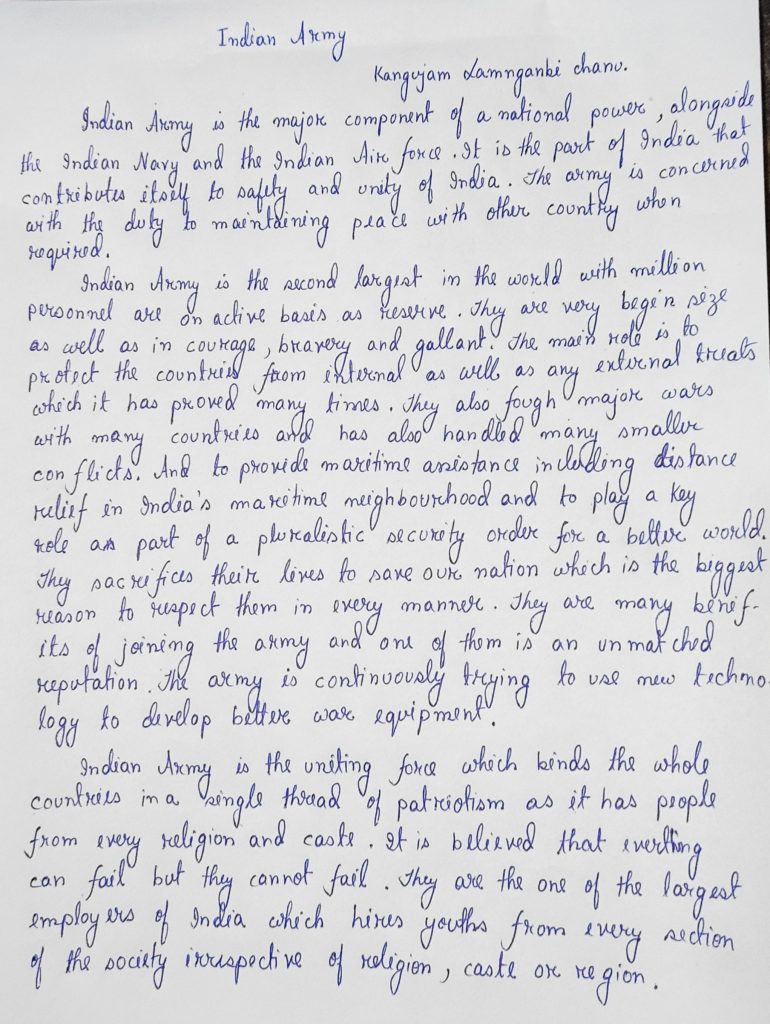 Indian Army
Kangujam Lamnganbi chanu.
Indian Army is the major component of a national power, alongside
the Indian Navy and the Indian Air force. It is the part of India that
contributes itself to safety and unity of India. The army is concerned
with the duty to maintaining peace with other country when
required.
Indian Army is the second largest in the world with million
personnel are on active basis as reserve. They are very beg in size
as well as in courage, bravery and gallant. The main role is to
protect the countries from internal as well as any external treats
which it has proved many times. They also fough major wars
with many countries and has also handled many smaller
conflicts. And to provide maritime assistance including distance
relief in India's maritime neighbourhood and to play a key
role as part of a pluralistic security order for a better world.
They sacrifices their lives to save our nation which is the biggest
reason to respect them in every manner. They are many benef-
its of joining the army and one of them is an unmatched
reputation. The army is continuously trying to use new techno-
logy to develop better war equipment.
Indian Army is the uniting force which binds the whole
countries in a single thread of patriotism as it has people
from every religion and caste. It is believed that everthing
can fail but they cannot fail. They are the one of the largest
employers of India which hires youths from every section
of the society irrespective of religion, caste or region.